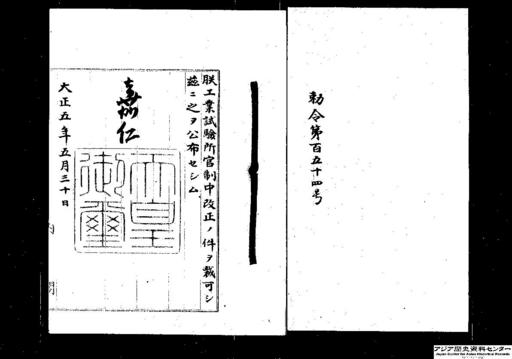 勅令第百五十四号
朕工業試験所官制中改正ノ件ヲ裁可シ
茲ニ之ヲ公布セシム
嘉仁
天皇
御璽
大正五年五月三十日
内閣
アジア歴史資料センター
Japan Center for Asian Historical Records